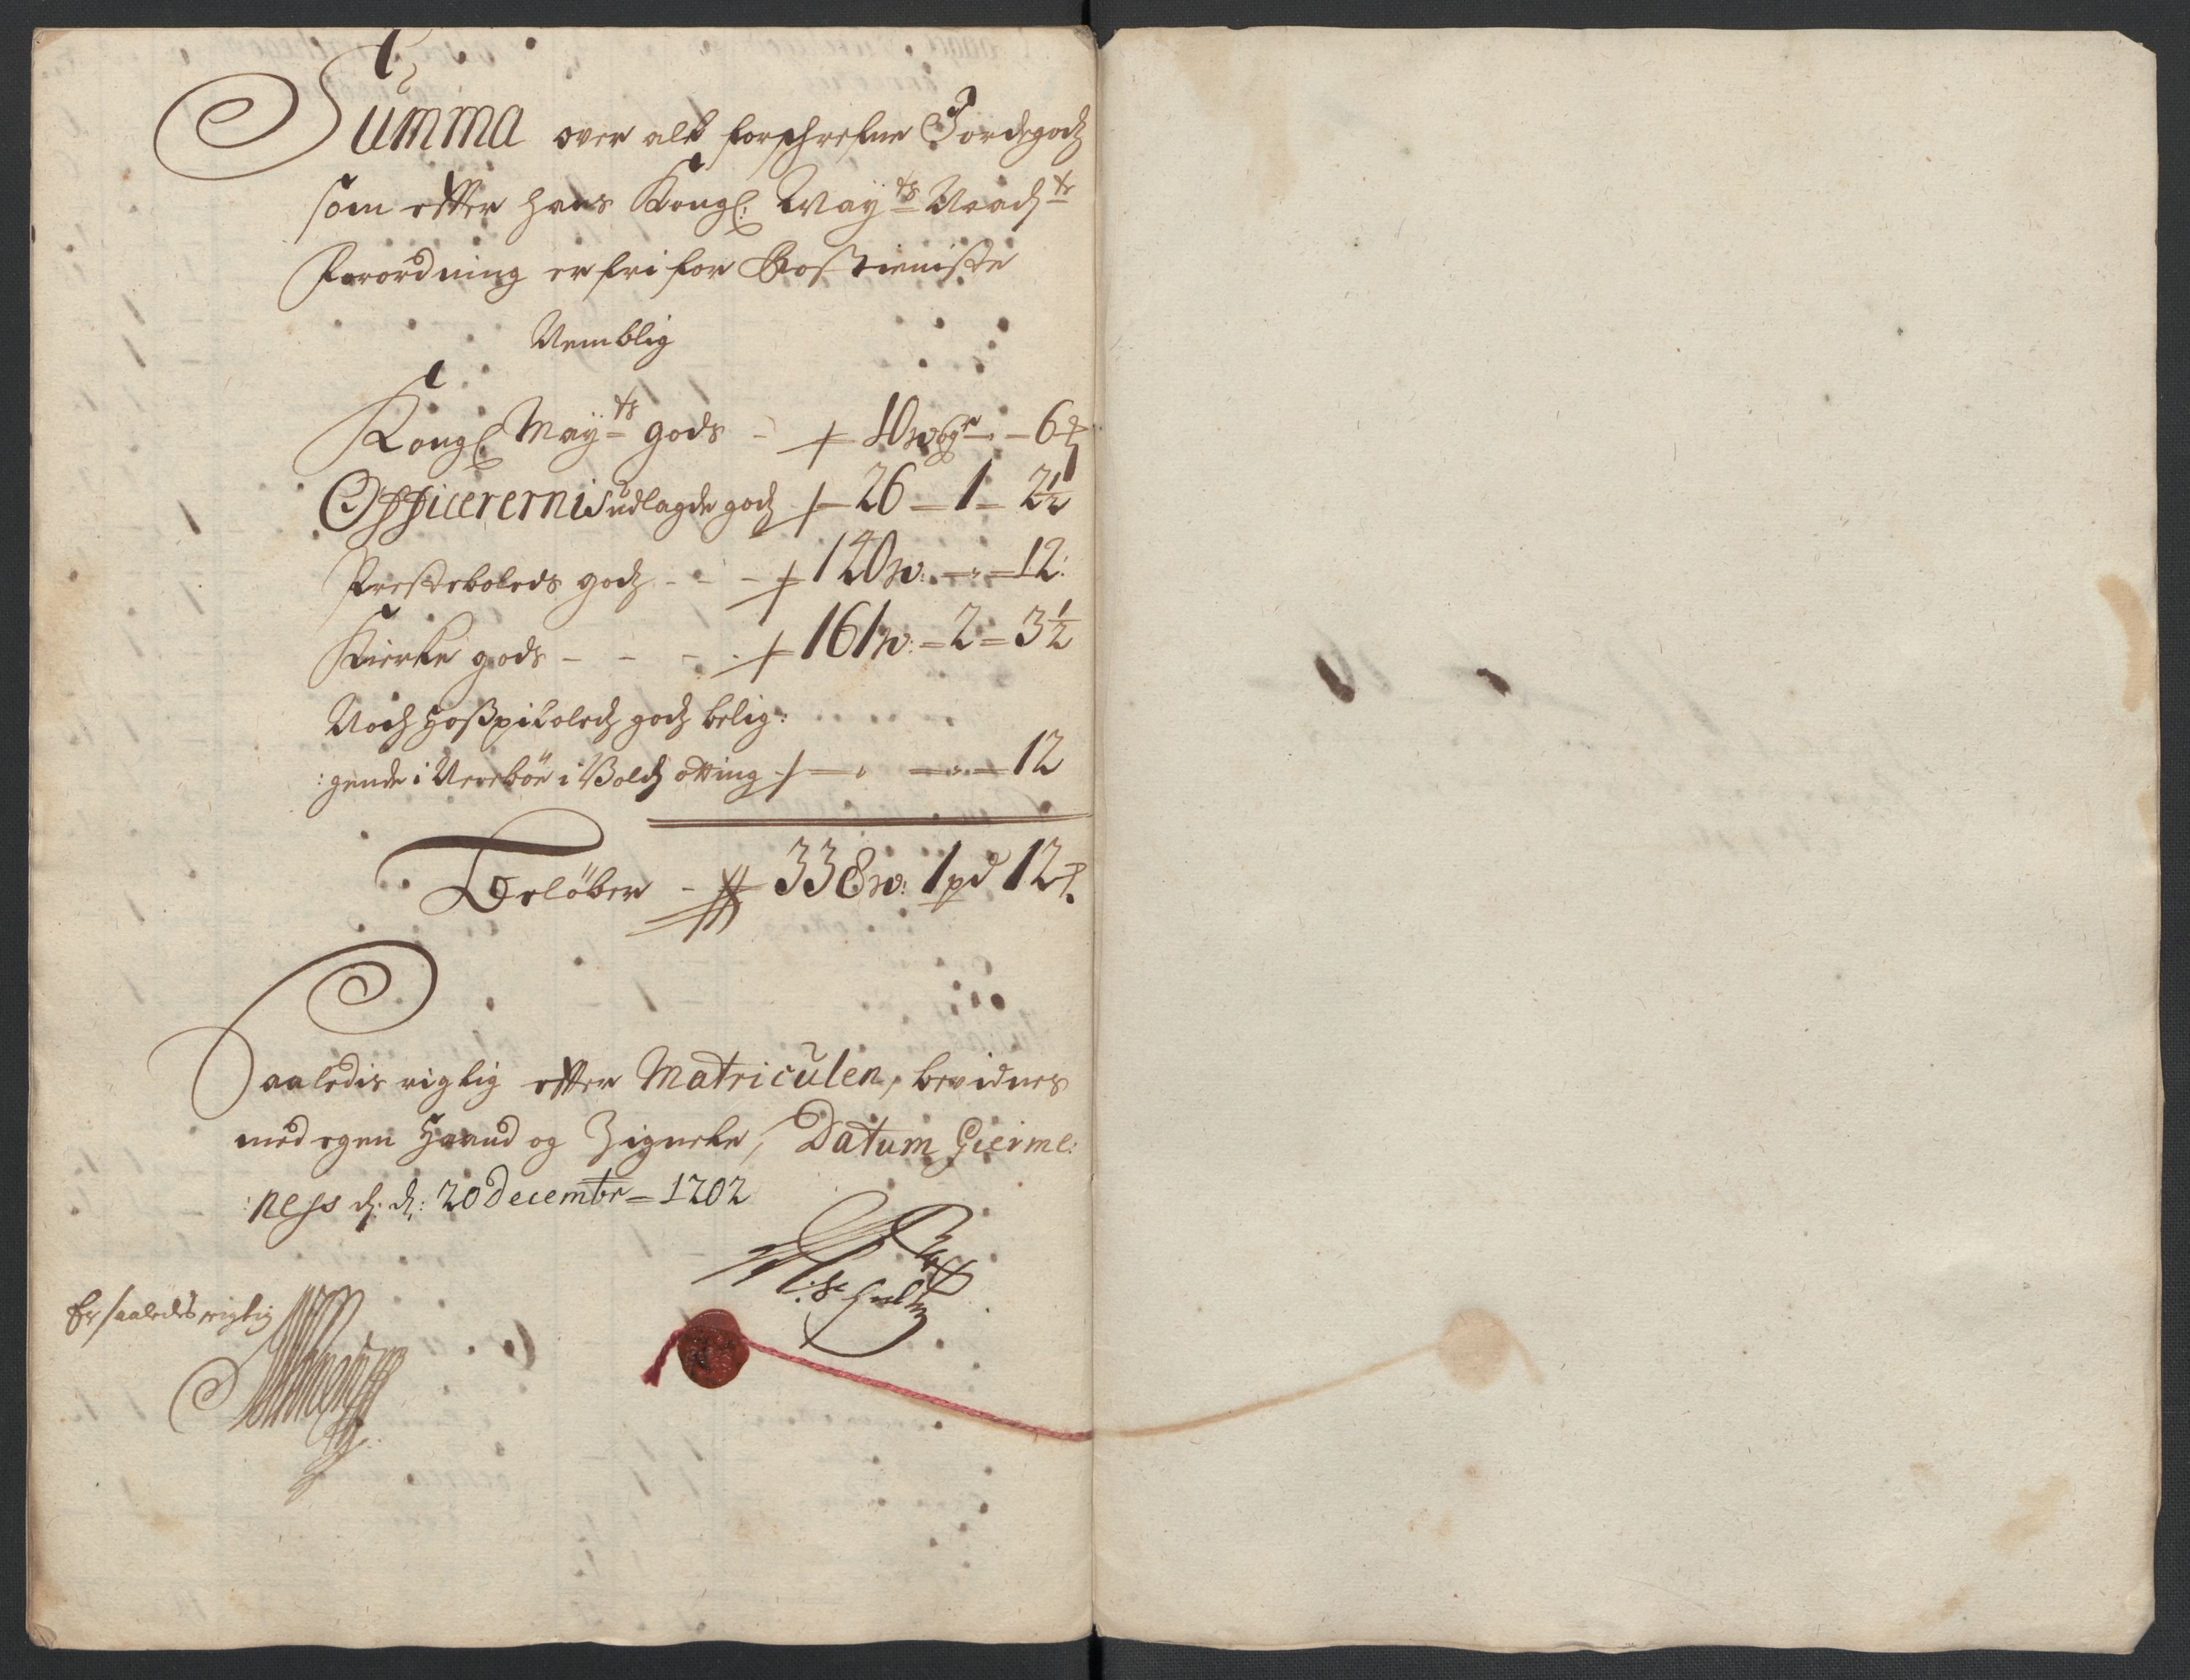 Summa over alt forschrefne Jordegodz
som effter hans Kongl: May:ts Naad:ts
Forordning er fri for Rostieniste
Nemblig
Kongl: May:ts gods - 10 woger - 6 ℔
Officerernis udlagde godz - 26 - 1 - 2½
Prestebolets godz - - - 140 w: - " - 12:
Kierke gods - - - - 161 w: - 2 - 3½
Noch Hospitaledz godz belig:
:gende i i Voldz otting - " - " - 12
Beløber - 338 w: 1 pd 12 ℔.
Saaledis rigtig effter Matriculen, bevidnes
med egen Haand og Zignete, Datum Gierme:
:ness d: d: 20 Decembr - 1702
Er saaledes rigtig